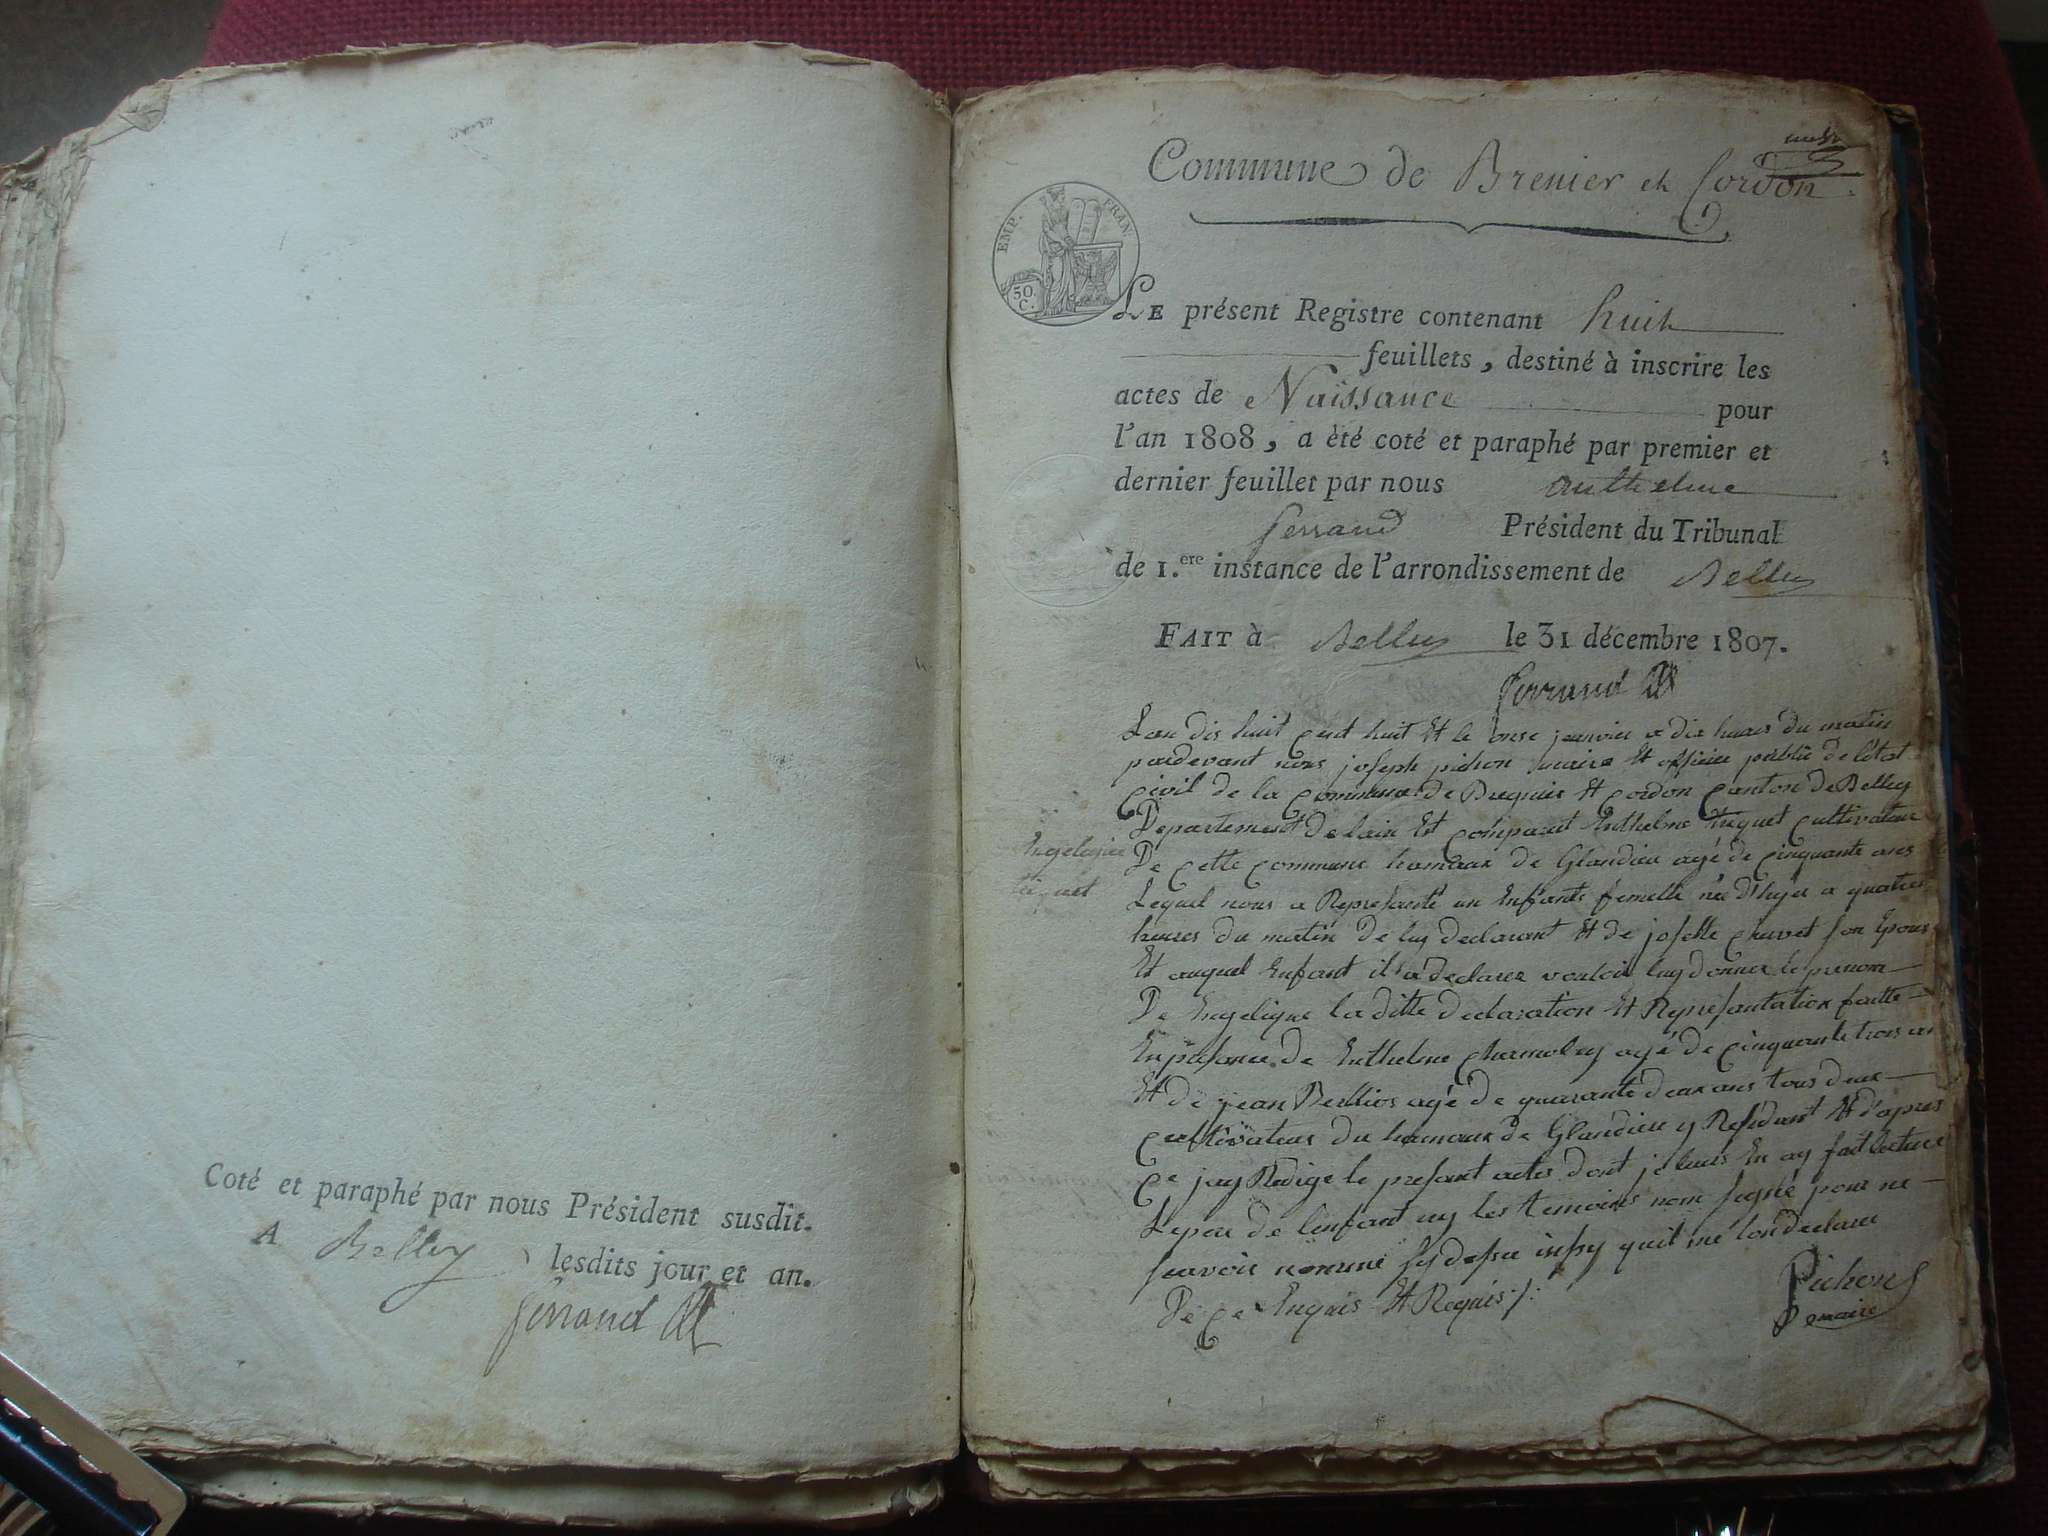 Coté et paraphé par nous Président susdit.
A Belley lesdits jour et an.
Ferrand
Commune de Brenier et Cordon
EMP. FRAN.
50 C.
LE présent Registre contenant huit
feuillets, destiné à inscrire les
actes de Naissance pour
l'an 1808, a été coté et paraphé par premier et
dernier feuillet par nous anthelme
ferrand Président du Tribunal
de 1.ere instance de l'arrondissement de Belley
FAIT à Belley le 31 décembre 1807.
Ferrand
Lan dis huit cent huit Et le onse janvier a dix heures du matin
pardevant nous joseph pichon maire Et officier public de letat
civil de la commune de Bregnié Et cordon canton de Belley
Departement de lain Est comparut Enthelme cultivateur
De cette commune hameaux de Glandieu agé de cinquante ans
Lequel nous a Represanté un Enfants femelle née D'hyér a quatres
heures du matin De luy declarant Et de josette chavet son Epouse
Et auquel Enfant il a declarez vouloir luy donner le prenom
De Engelique la ditte declaration Et Represantation faitte
En presance de Enthelme agé de cinquante trois an
Et de jean Berllios agé de quarante deux ans tous deux
cultivateur du hameaux de Glandieu y Residant Et d'apres
ce jay Redige le presant actes dont je leurs En ay fait lecture
Le pere de lenfant ny les temoins nom signé pour ne
scavoir
De ce Enquis Et Requis
Pichon
maire